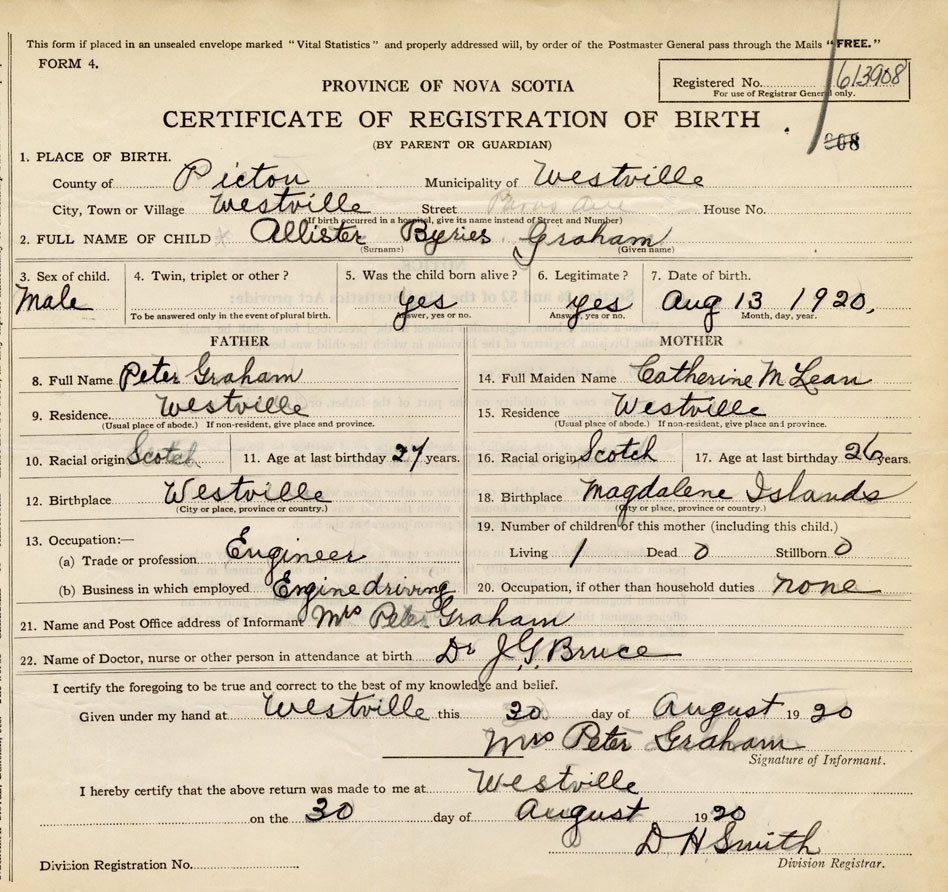 This form if placed in an unsealed envelope marked "Vital Statistics" and properly addressed will, by order of the Postmaster General pass through the Mails "FREE."
FORM 4.
Registered No. 613908
For use of Registrar General only.
PROVINCE OF NOVA SCOTIA
CERTIFICATE OF REGISTRATION OF BIRTH
908
(BY PARENT OR GUARDIAN)
1. PLACE OF BIRTH.
County of Picton Municipality of Westville
City, Town or Village Westville Street House No.
(If birth occurred in a hospital, give its name instead of Street and Number)
2. FULL NAME OF CHILD Allister Byries Graham
(Surname) (Given name)
3. Sex of child. 4. Twin, triplet or other? 5. Was the child born alive? 6. Legitimate? 7. Date of birth.
Male yes yes Aug 13 1920,
To be answered only in the event of plural birth. Answer, yes or no. Answer, yes or no. Month, day, year.
FATHER MOTHER
8. Full Name Peter Graham 14. Full Maiden Name Catherine McLean
9. Residence. Westville 15. Residence Westville
(Usual place of abode.) If non-resident, give place and province. (Usual place of abode.) If non-resident, give place and province.
10. Racial origin Scotch 11. Age at last birthday 27 years. 16. Racial origin Scotch 17. Age at last birthday 26 years.
12. Birthplace Westville 18. Birthplace Magdalene Islands
(City or place, province or country.) (City or place, province or country.)
13. Occupation:— 19. Number of children of this mother (including this child.)
(a) Trade or profession Engineer Living 1 Dead 0 Stillborn 0
(b) Business in which employed Engine driving 20. Occupation, if other than household duties none
21. Name and Post Office address of Informant Mrs Peter Graham
22. Name of Doctor, nurse or other person in attendance at birth Dr J.G. Bruce
I certify the foregoing to be true and correct to the best of my knowledge and belief.
Given under my hand at Westville this 30 day of August 1920
Mrs Peter Graham
Signature of Informant.
I hereby certify that the above return was made to me at Westville
on the 30 day of August 1920
D H Smith
Division Registration No. Division Registrar.